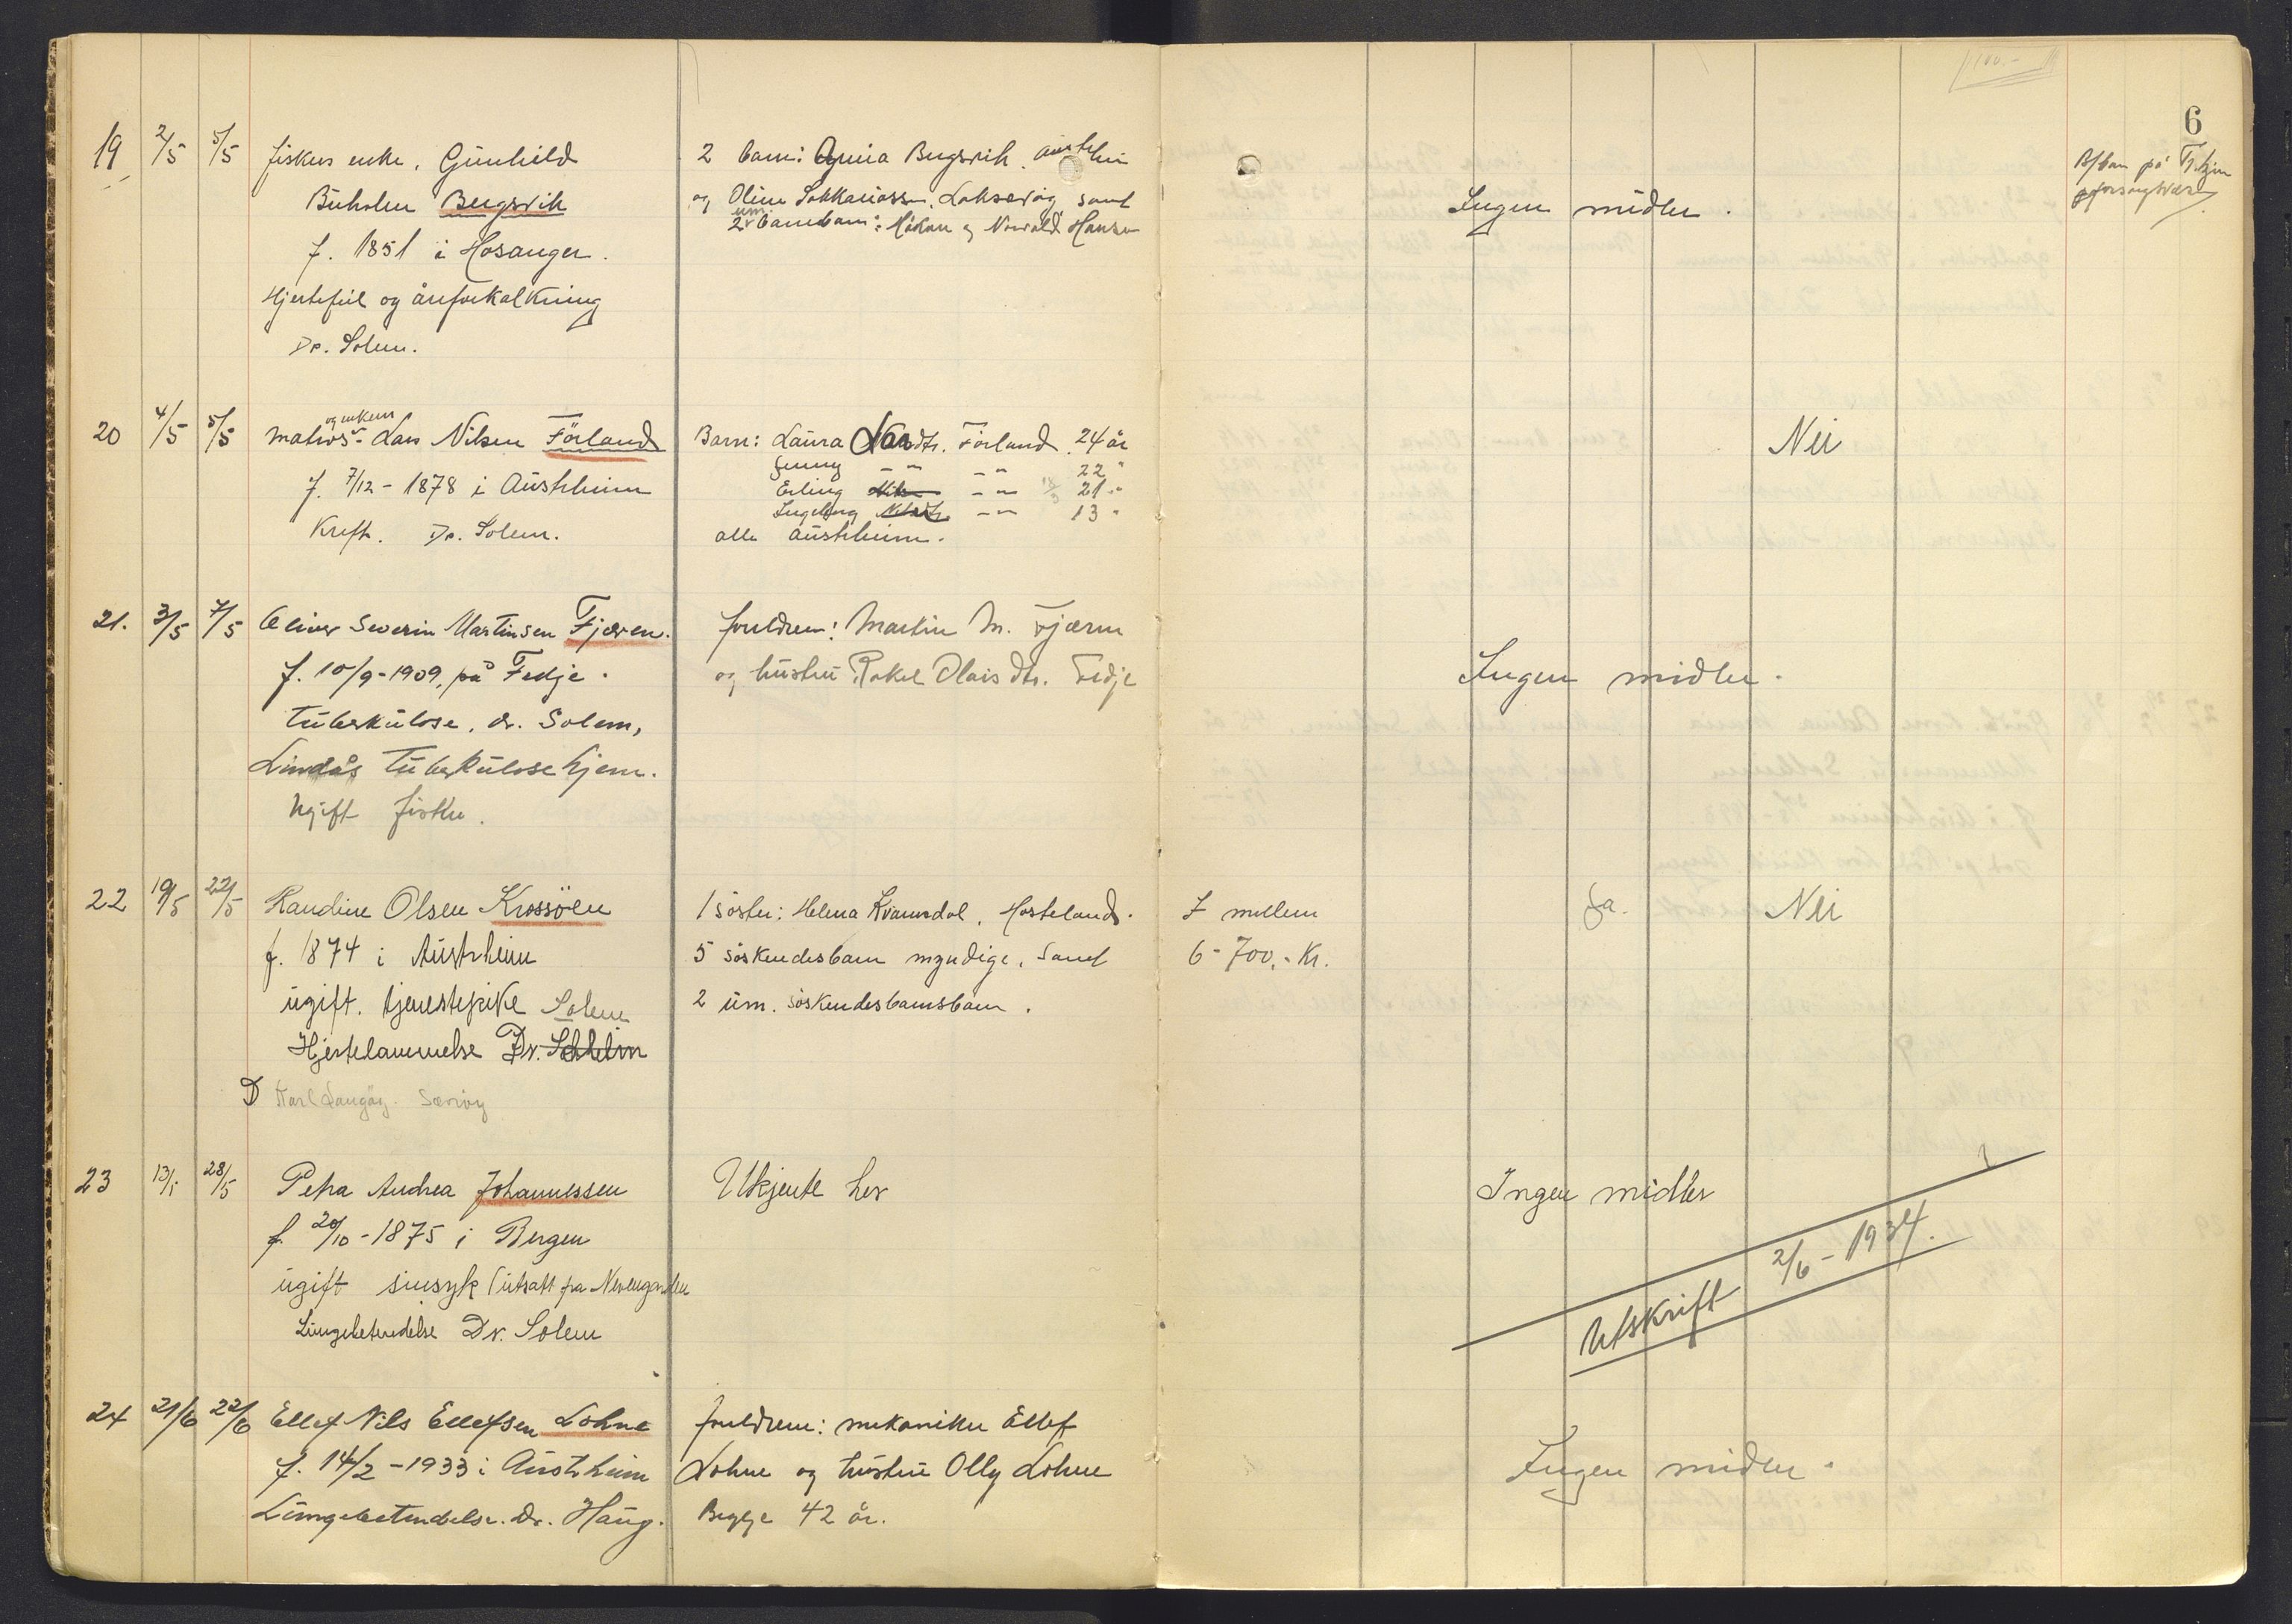 6
19 2/5 5/5 fiskers enke, Gunhild
Buholm Bergsvik
f. 1851 i Hosanger.
Hjertefeil og åreforkalkning
Dr. Solem.
2 barn: Anna Bergsvik. Austrheim
og Oline Sakkariassen, Lokøevåg samt
2 um. barnebarn: Håkon og Norvald Hansen
Ingen midler.
på Tr.hjem
20 4/5 5/5 matros og enkem. Lars Nilsen Förland
f. 7/12-1878 i Austrheim
Kreft. Dr. Solem.
Barn: Laura Larsdtr. Förland. 24 år
Jenny -"- -"- 22 "
Erling -"- 21 "
Ingeborg -"- 13 "
alle Austrheim.
Nei
21. 3/5 7/5 Oliver Severin Martinsen Fjæren.
f. 10/9-1909, på Fedje.
tuberkulose, dr. Solem,
Lindås Tuberkulosehjem.
Ugift fisker.
foreldre: Martin M. Fjæren
og hustru Rakel Olaisdtr. Fedje
Ingen midler.
22 19/5 22/5 Randine Olsen Krossöen
f. 1874 i Austrheim
ugift. tjenestepike Solem
Hjertelammelse Dr.
D Karl Langöy. Særvåg
1 söster: Helena Kvamsdal, Hosteland.
5 söskendesbarn myndige, samt
2 um. söskendesbarnsbarn.
I mellem
6-700,- Kr.
Ja.
Nei
23 13/1 28/5 Petra Andrea Johannessen
f. 20/10-1875 i Bergen
ugift sinsyk (utsatt fra Neevengården
Lungebetendelse Dr. Solem
Ukjente her
Ingen midler
Utskrift 2/6-1934.
24 21/6 22/6 Ellef Nils Ellefsen Lohne
f. 14/2-1933 i Austrheim
Lungebetendelse. Dr. Haug.
foreldrene: mekaniker Ellef
Lohne og hustru Olly Lohne
Begge 42 år.
Ingen midler.